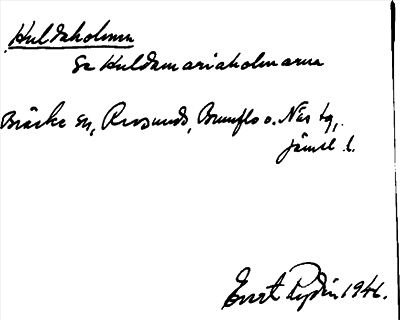 Huldaholmen
Se Huldamariaholmarna
Bräcke sn, Revsunds, Brunflo o. Näs tg,
Jämtl l.
Evert Rydin 1946.